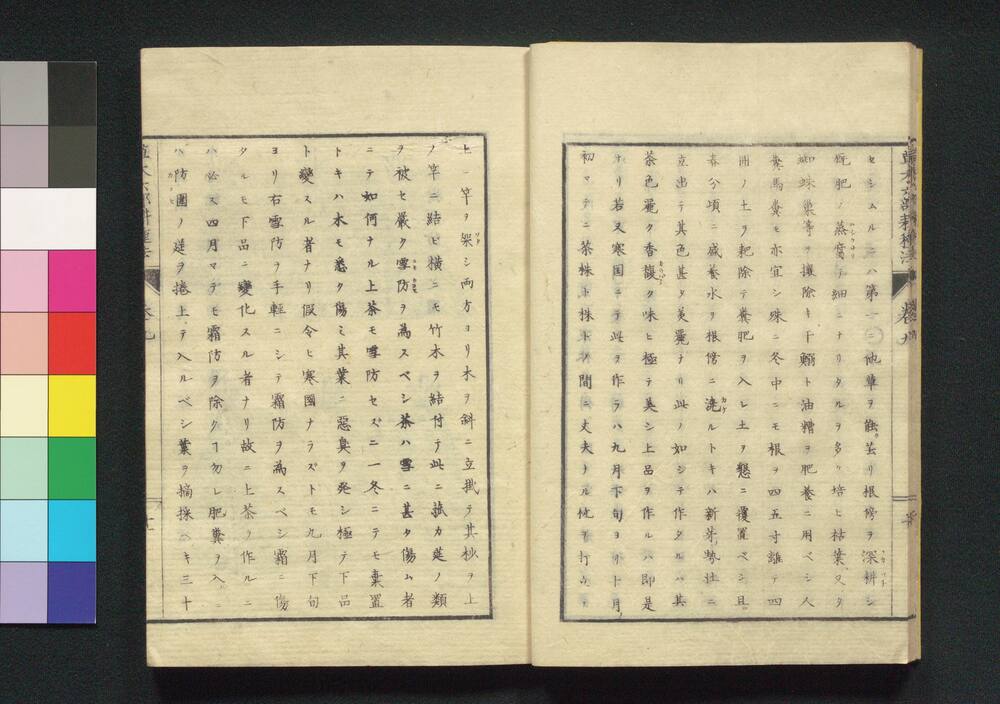 セシムルニハ第一ニ他草ヲ能ク芸リ根傍ヲ深耕シ
肥ノ蒸腐テ細ニナリタルヲ多ク培ヒ枯葉又タ
蜘蛛巣等ヲ攘除キ干鰯ト油糟ヲ肥養ニ用ベシ人
糞馬糞モ亦宜シ殊ニ冬中ニモ根ヲ四五寸離テ四
洲ノ土ヲ耙除テ糞肥ヲ入レ土ヲ懇ニ覆置ベシ且
春分頃ニ咸養水ヲ根傍ニ澆ルトキハ新芽勢壮ニ
立出テ其色甚タ美麗ナリ此ノ如シテ作タルハ其
茶色麗ク香馥ク味ヒ極テ美シ上品ヲ作ルハ即是
ナリ若又寒国ニテ此ヲ作ラハ九月下旬ヨリ十月
初マテニ茶株ト株トノ間ニ丈夫ナル杭ヲ打立
上ニ竿ヲ架シ両方ヨリ木ヲ斜ニ立掛テ其杪ヲ上
ノ竿ニ結ヒ横ニモ竹木ヲ結付テ此ニ菰カ莚ノ類
ヲ被セ厳ク雪防ヲ為スベシ茶ハ雪ニ甚タ傷ム者
ニテ如何ナル上茶モ雪防セズニ一冬ニテモ棄置
トキハ木モ悉ク傷ミ其葉ニ悪臭ヲ発シ極テ下品
ト變スル者ナリ假令ヒ寒國ナラズトモ九月下旬
ヨリ右雪防ヲ手輕ニシテ霜防ヲ為スベシ霜ニ傷
タルモ下品ニ變化スル者ナリ故ニ上茶ヲ作ルニ
ハ必ス四月マデモ霜防ヲ除クヿ勿レ肥糞ヲ入ニ
ハ防圍ノ莚ヲ捲上テ入ルベシ葉ヲ摘採ヘキ三十